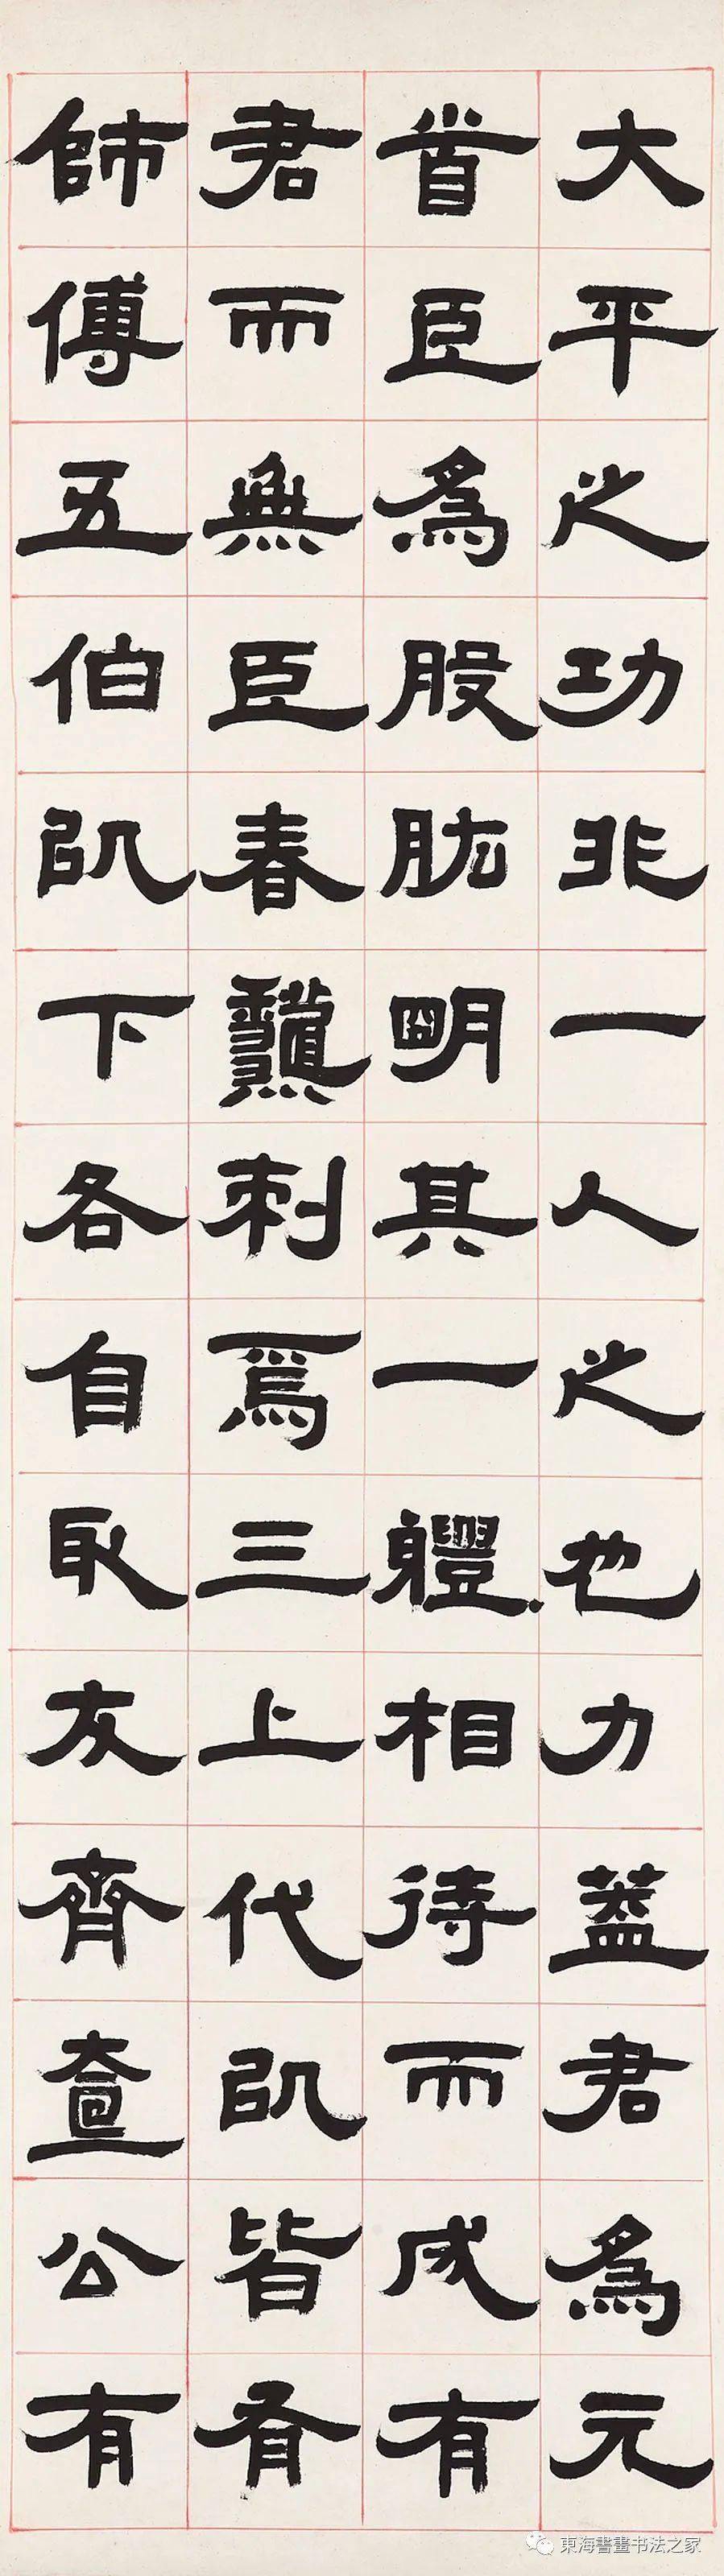 大平之功非一人之也力蓋君為元
首臣為股肱明其一軆相待而成有
君而無臣春龝刺焉三上代以皆有
師傅五伯以下各自取友齊壹公有
東海書畫书法之家